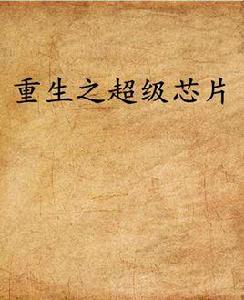 重生之超级芯片